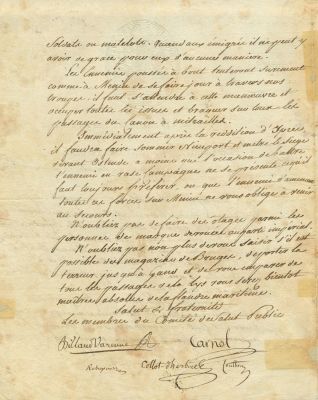 soldats ou matelots. quand aux émigrés il ne peut y
avoir de grace pour eux d'aucune maniere.
Les ennemis poussés à bout tenteront surement
comme à Menin de se faire jour à travers nos
troupes. il faut s'attendre à cette manœuvre et
occuper toutes les issues et braquer sur tous les
passages du canon à mitrailles.
Immédiatement après la reddition d'Ypres
il faudra faire sommer Nieuport et mettre le siege
devant Ostende à moins que l'occasion de battre
l'ennemi en rase campagne ne se présente ce qu'il
faut toujours préférer, ou que l'ennemi
toutes ses forces sur Menin ne vous oblige à venir
au secours.
N'oubliez pas de faire des otages parmi les
personnes de marque dévouées au parti impérial.
N'oubliez pas non plus de vous saisir s'il est
possible des magazins de Bruges, de porter la
terreur jusqu'à Gand et de vous emparer de
tous les passages de la Lys vous serez bientot
maîtres absolus de la flandre maritime.
Salut et fraternité
Les membres du Comité de Salut Public
Billaud Varenne Carnot
Robespierre Collot d'herbois Couthon